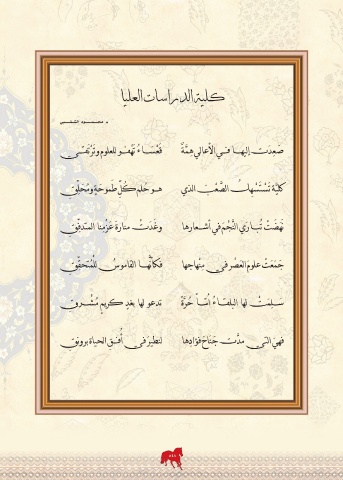 كلية الدراسات العليا
صعدت إليها في الأعالي همّةً قعْساءُ تهفو للعلوم وترتقي
كليّة تستسهلُ الصَّعْبَ الذي هو حلم كلّ طموحة ومُحلّق
نهضتْ تُباري النَّجْمَ في أسْعارها وغدتْ منارة عزمنا المتدفّق
جمعتْ علوم العصر في منهاجها فكأنّها القاموسُ للمُتحقّق
سلمتْ لها البلقاءُ أمّاً حُرّةً تدعو لها بغدٍ كريمٍ مُشْرق
فهي التي مدّت جناح فؤادها لنطير في أفق الحياة برونق